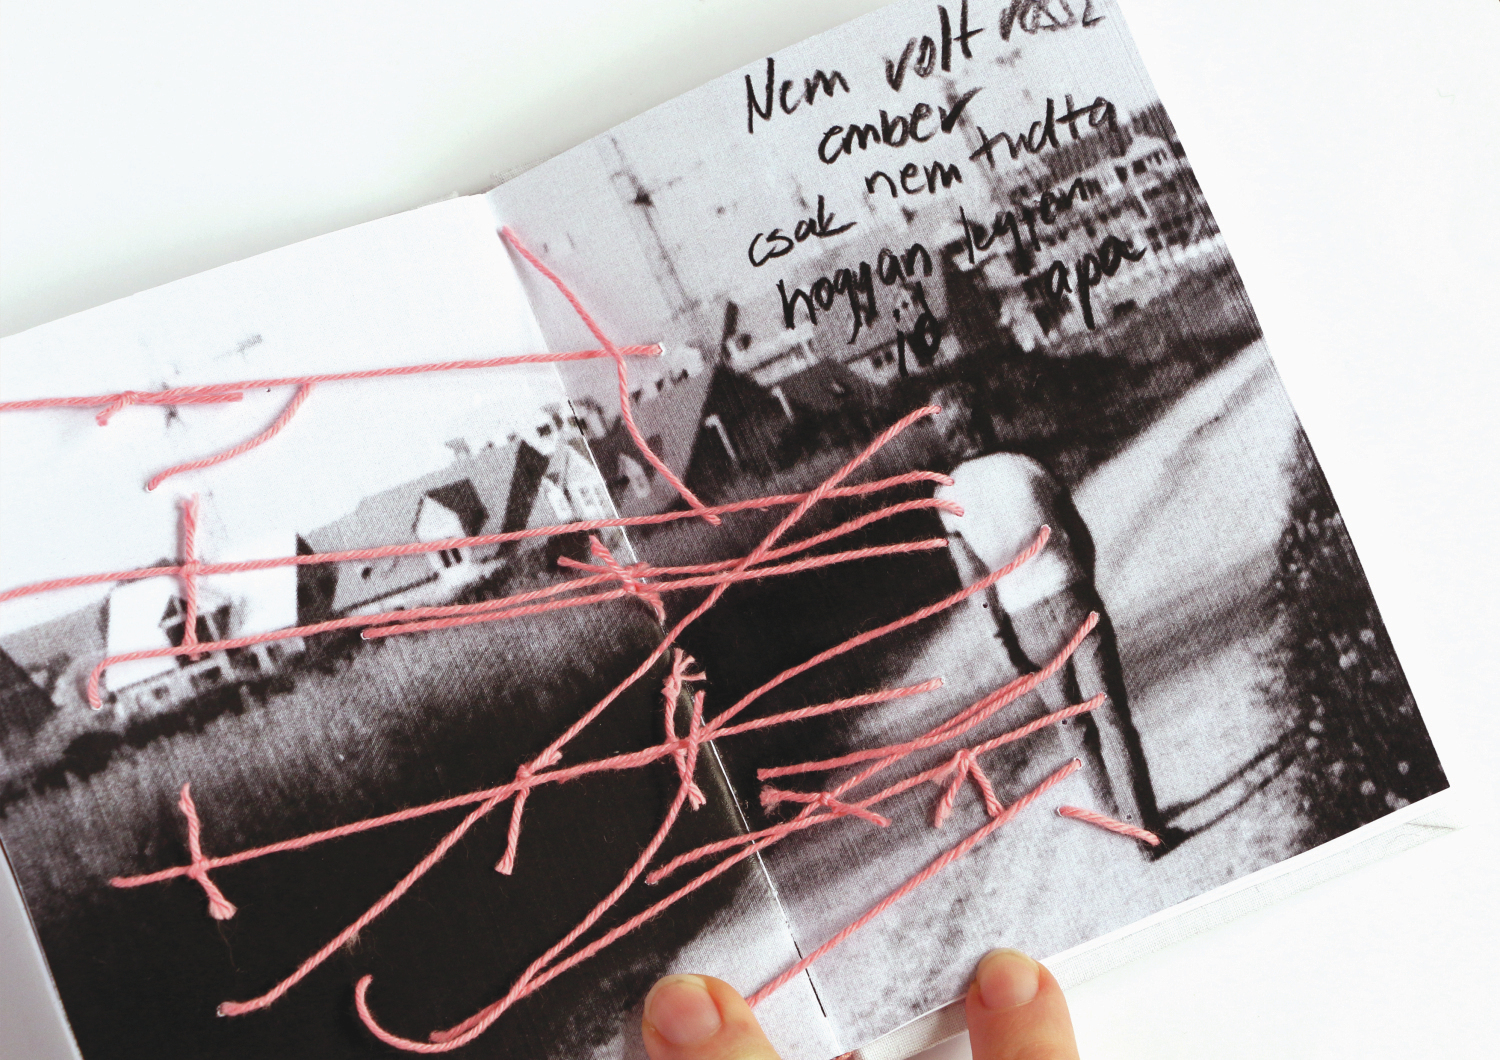 Nem volt rossz
ember
csak nem tudta
hogyan legyen
jó apa